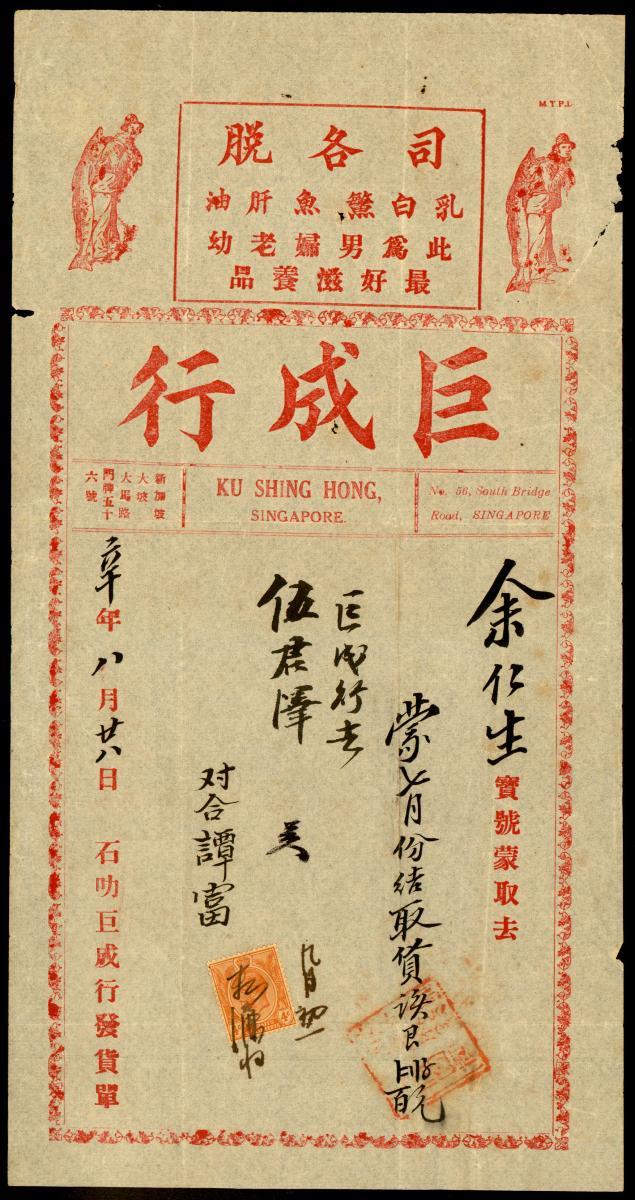 M.Y.P.L
司各脫
乳白鰵魚肝油
此爲男婦老幼
最好滋養品
巨成行
新加坡
大坡
大馬路
門牌五十
六號
KU SHING HONG,
SINGAPORE.
No. 56, South Bridge
Road, SINGAPORE
余仁生寶號蒙取去
蒙七月份結取貨該艮
巨成行去
伍君澤
対合譚富
九月初一
年八月廿八日 石叻巨成行發貨單